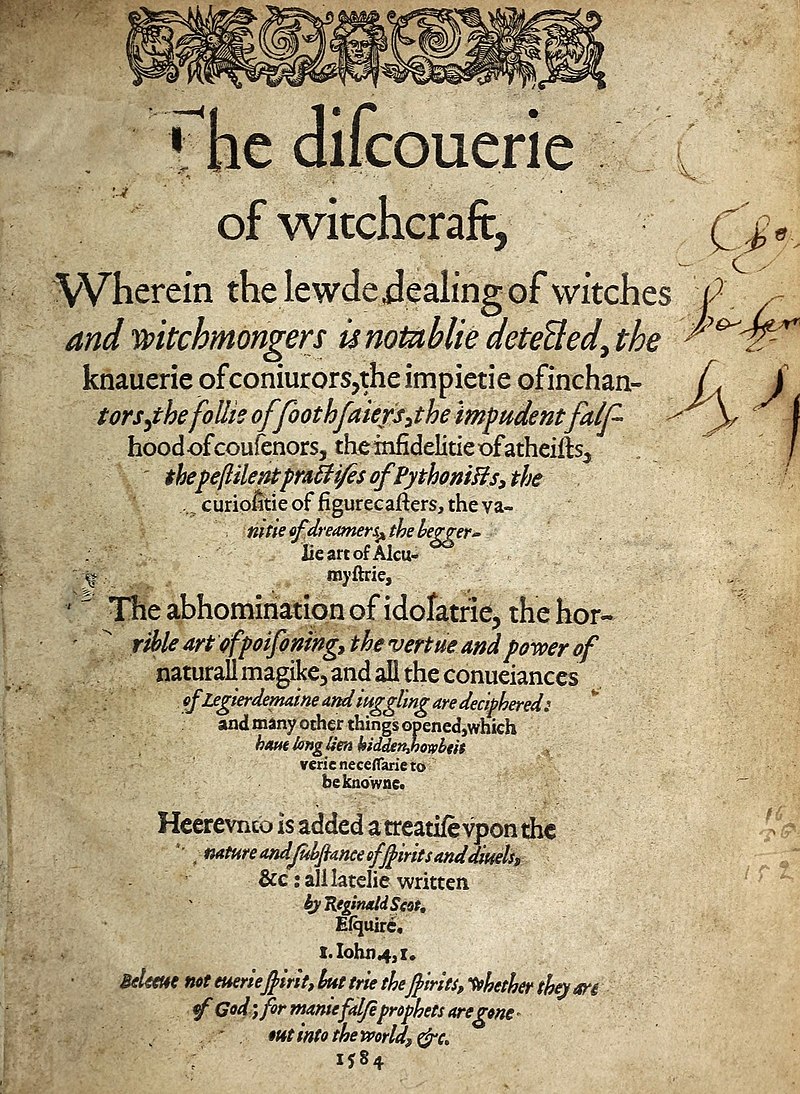 The diſcouerie
of witchcraft,
Wherein the lewde dealing of witches
and witchmongers is notablie detected, the
knauerie of coniurors, the impietie of inchan-
tors, the follie of ſoothſaiers, the impudent falſ-
hood of couſenors, the infidelitie of atheiſts,
the peſtilent practiſes of Pythoniſts, the
curioſitie of figurecaſters, the va-
nitie of dreamers, the begger-
lie art of Alcu-
myſtrie,
The abhomination of idolatrie, the hor-
rible art of poiſoning, the vertue and power of
naturall magike, and all the conueiances
of Legierdemaine and iuggling are deciphered:
and many other things opened, which
haue long lien hidden, howbeit
verie neceſſarie to
be knowne.
Heerevnto is added a treatiſe vpon the
nature and ſubſtance of ſpirits and diuels,
&c : all latelie written
by Reginald Scot.
Eſquire.
1. Iohn. 4, 1.
Beleeue not euerie ſpirit, but trie the ſpirits, whether they are
of God; for manie falſe prophets are gone
out into the world, &c.
1584
16
152